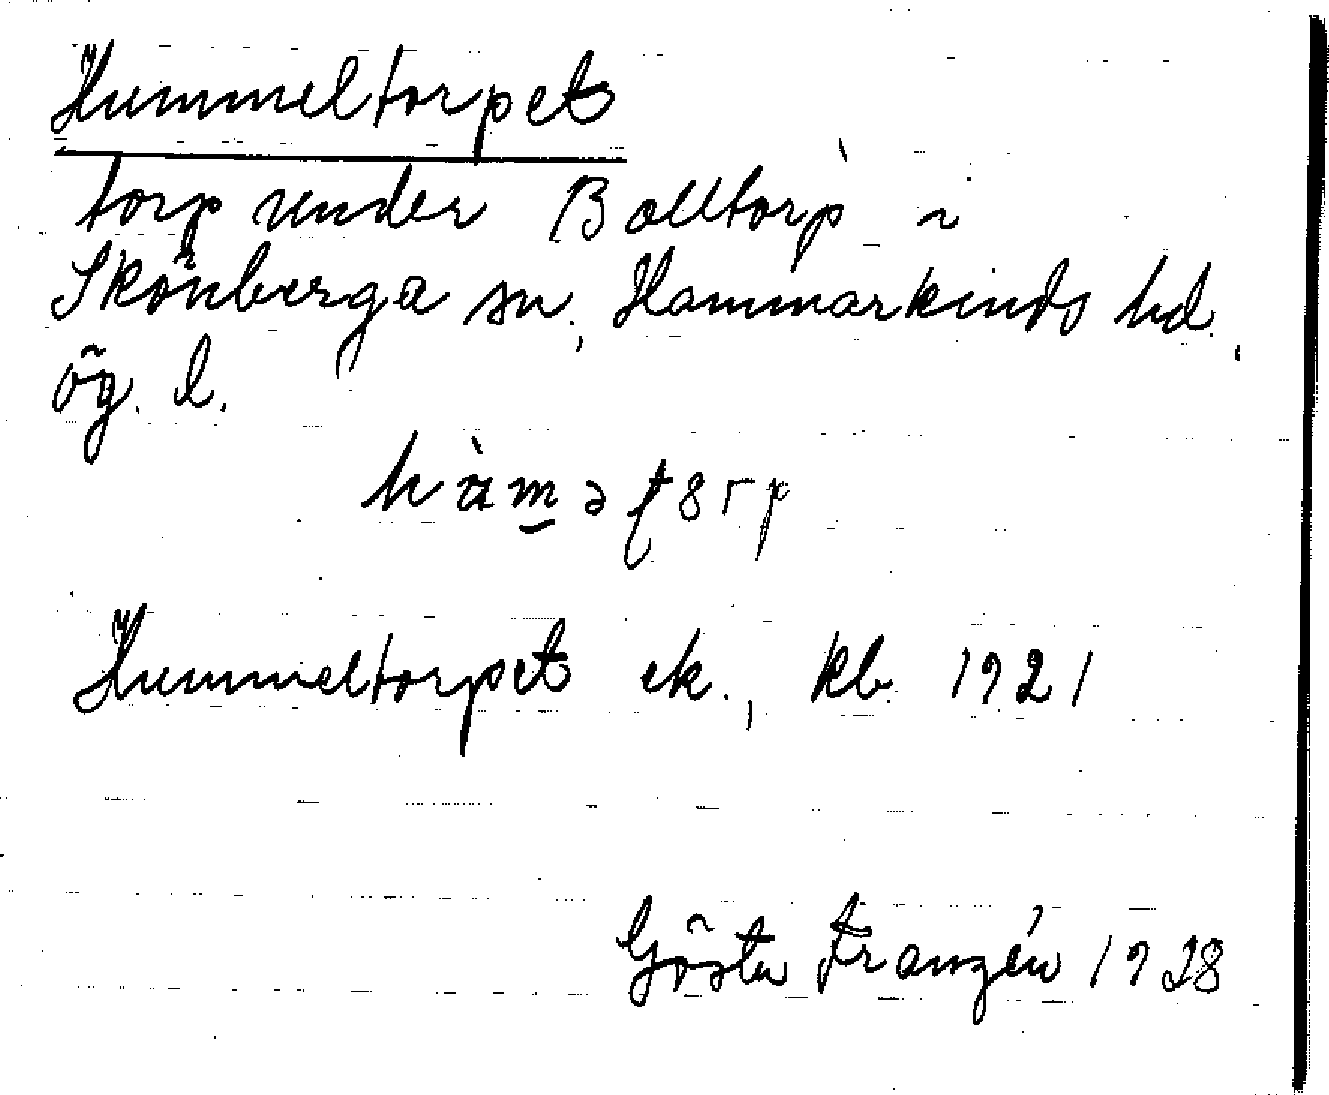 Hummeltorpet
torp under Bolltorp i
Skönberga sn, Hammarkinds hd,
Ög. l.
hùmət8rp
Hummeltorpet ek., kb 1921
Gösta Franzén 1928